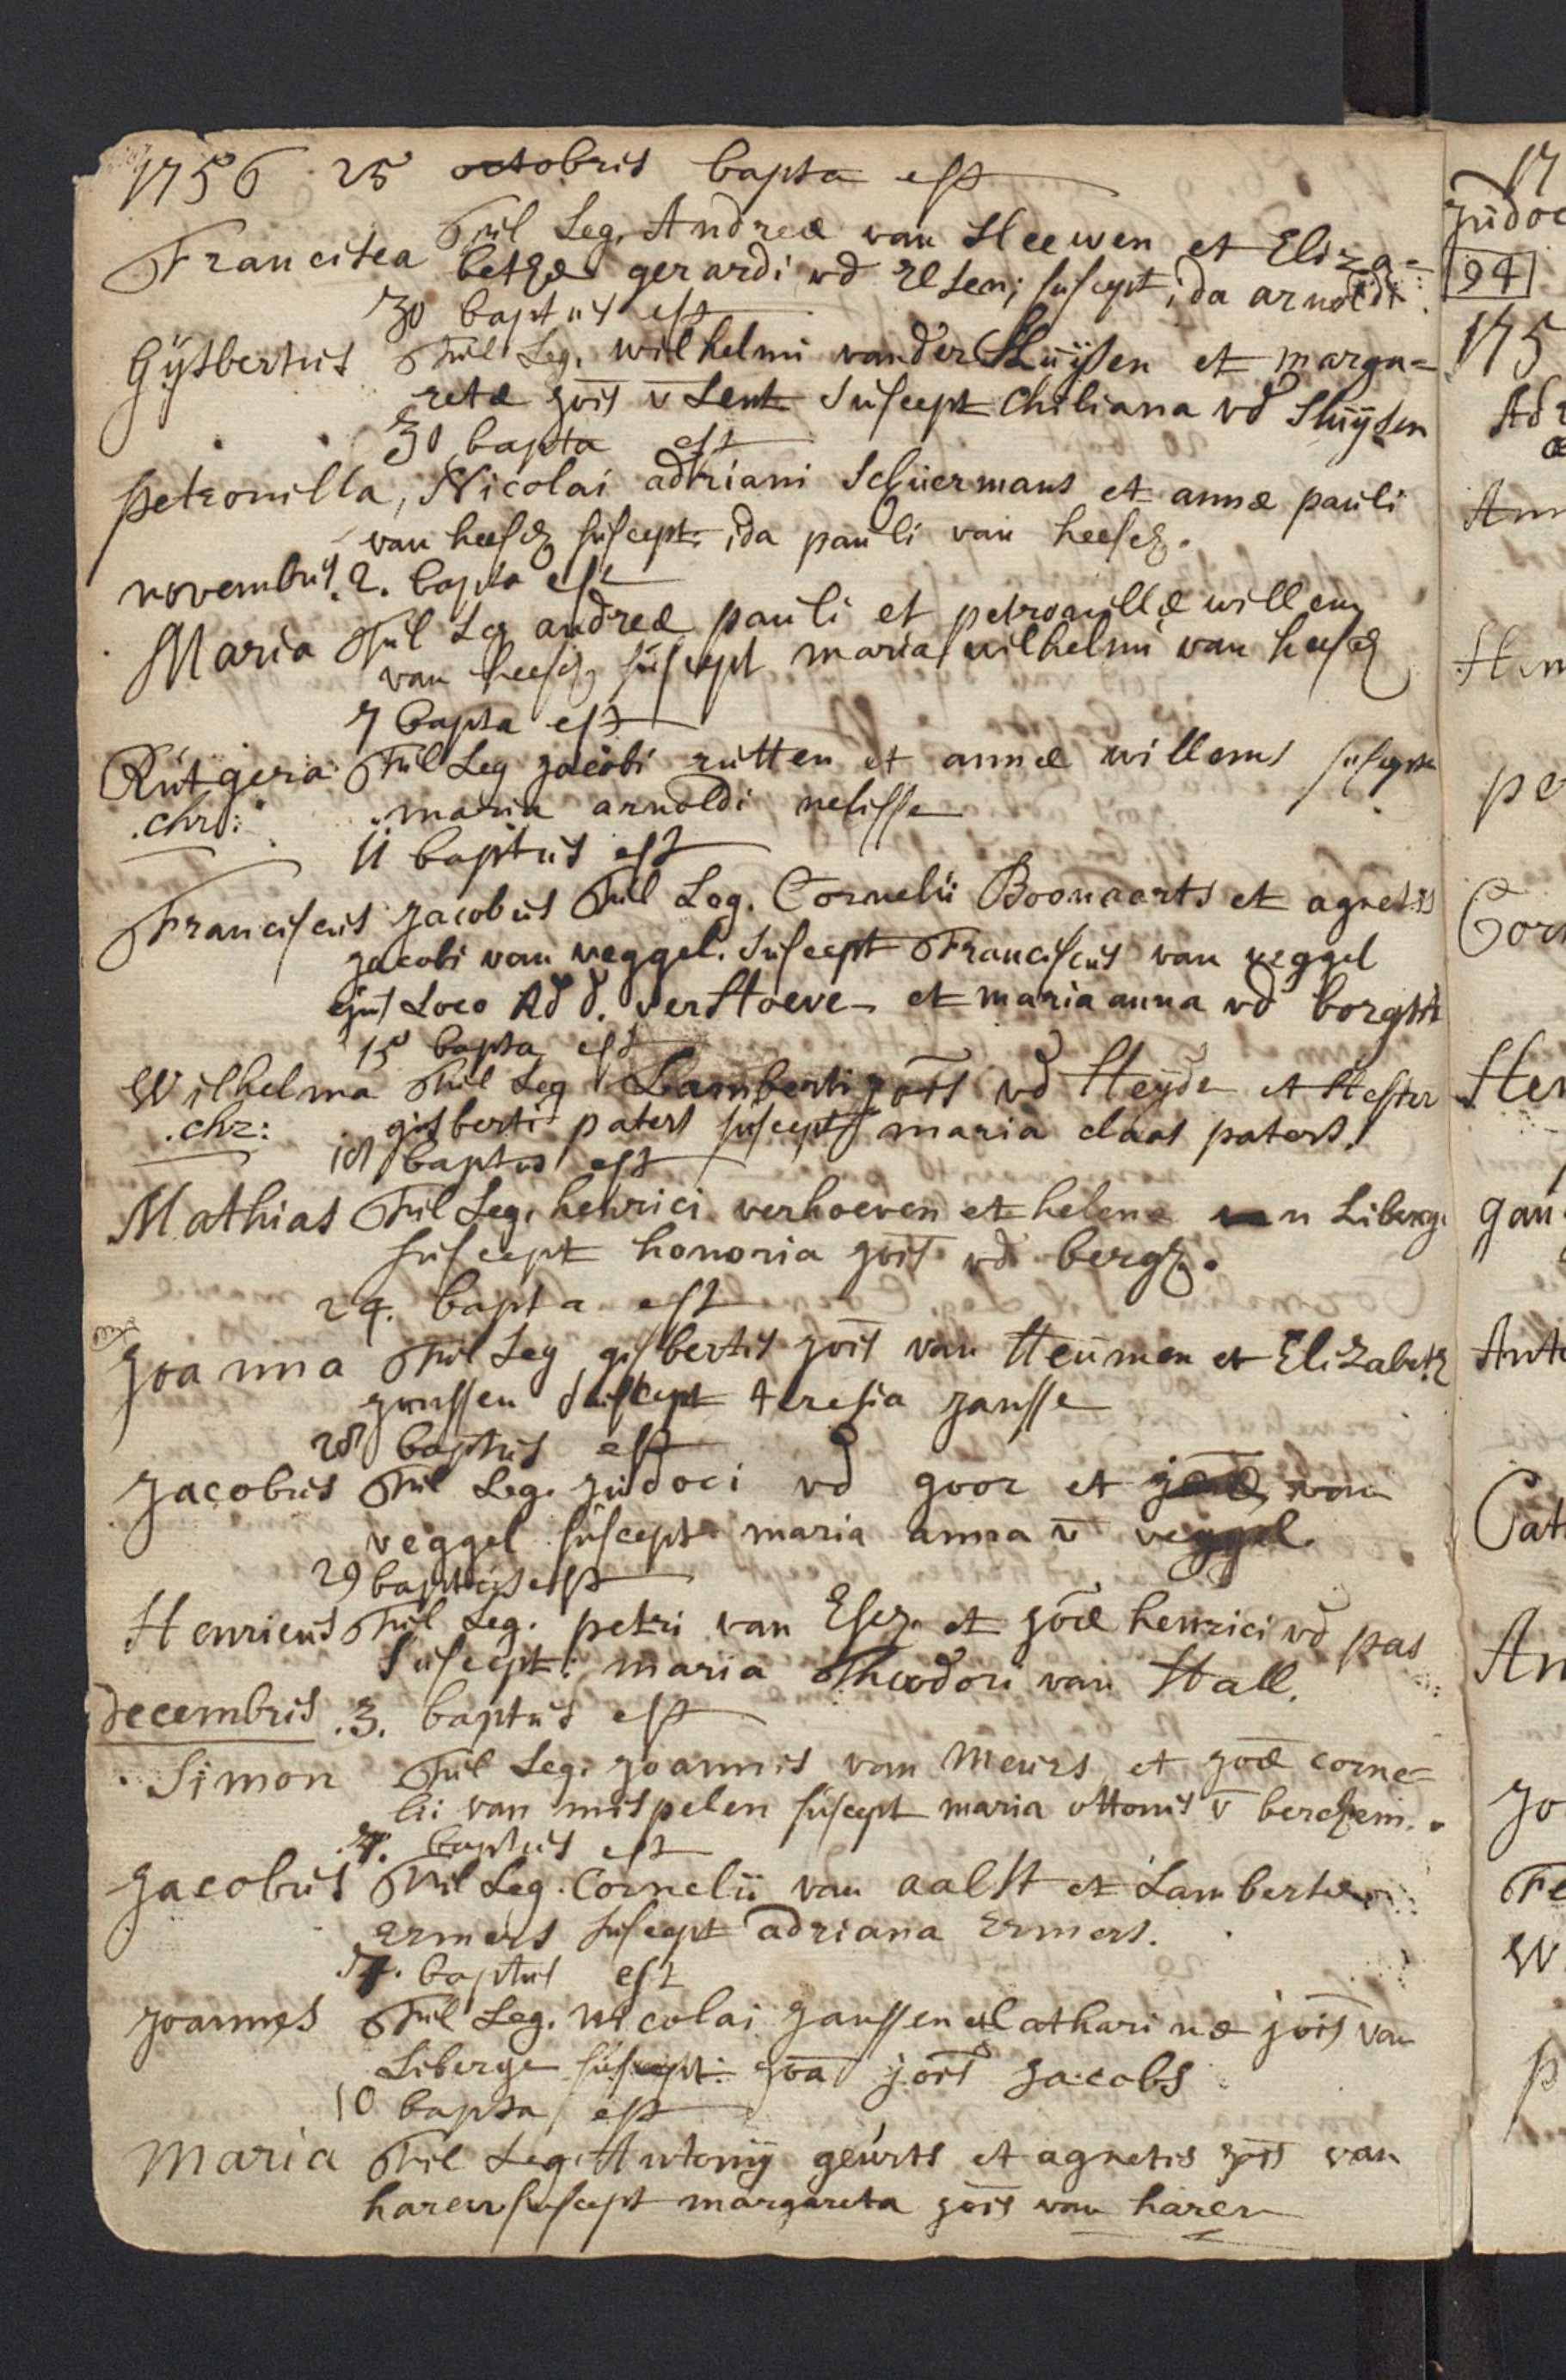 1756 25 octobris bapta est
Francisca fil Leg. Andreæ van Heewen et Eliza=
bethæ gerardi vd Elsen; suscept ida arnoldi
30 baptus est
Gÿsbertus fil Leg. wilhelmi vander Sluÿsen et marga=
retæ jois v Lent Suscept Chiliana vd Sluÿsen
30 bapta est
petronilla, Nicolai adriani Schuermans et annæ pauli
van heesch suscept. ida pauli van heesch.
novembris. 2. bapta est
Maria fil Leg andreæ pauli et petronillæ willem
van heesch suscept maria wilhelmi van heesch
7 bapta est
Rutgera fil Leg jacobi rutten et annæ willems suscept
.chr: maria arnoldi nelisse
11 baptus est
Franciscus jacobus fil Leg. Cornelii Boonaerts et agnetis
jacobi van veggel. Suscept Franciscus van veggel
ejus Loco Ad d. verStoeve et maria anna vd borght
15 bapta est
Wilhelma fil Leg Lamberti jois vd Heÿde et Hester
.chr: gisberti paters suscept maria claas paters.
18 baptus est
Mathias fil Leg. henrici verhoeven et helenæ van Liberg.
suscept honoria jois vd bergh.
24. bapta est
Joanna fil Leg gisbertis jois van Heumen et Elizabeth
janssen suscept teresia jansse
28 baptus est
Jacobus fil Leg. judoci vd goor et joæ van
veggel suscept maria anna v veggel.
29 baptus est
Henricus fil Leg. petri van Esch et joæ henrici vd pas
Suscept: maria Theodori van Hall.
Decembris .3. baptus est
Simon fil Leg. joannis van Meurs et joæ corne=
lii van mispelen suscept maria ottonis v berchem.
4. baptus est
Jacobus fil Leg. Cornelii van aalst et Lambertæ
ermers suscept adriana Ermers.
baptus est
joannes fil Leg. Nicolai janssen et Catharinæ jois van
Liberge suscept: joa jois jacobs
10 bapta est
Maria fil Leg. Antonij geurts et agnetis jois van
haren suscept margareta jois van haren
17
judoc
94
175
Ad
Ann
Hen
pe
Cor
Hen
gau
Anto
Cat
An
jo
Fe
W
p